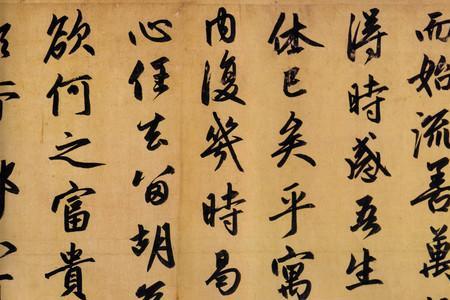 而始流善萬
得時感吾生
休已矣乎寓
內復幾時曷
心任去留胡
欲何之富貴